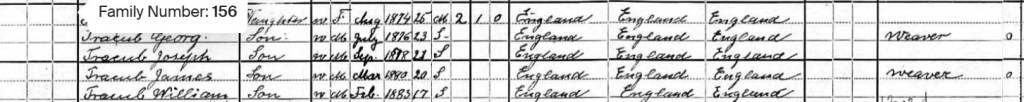 Family Number: 156
Daughter W F Aug 1874 25 M 2 1 0 England England England
Tracub Georg. Son. W M July 1876 23 S England England England Weaver 0
Tracub Joseph Son W M Sep 1878 21 S England England England
Tracub James Son W M Mar 1880 20 S England England England Weaver 0
Tracub William Son W M Feb. 1883 17 S England England England